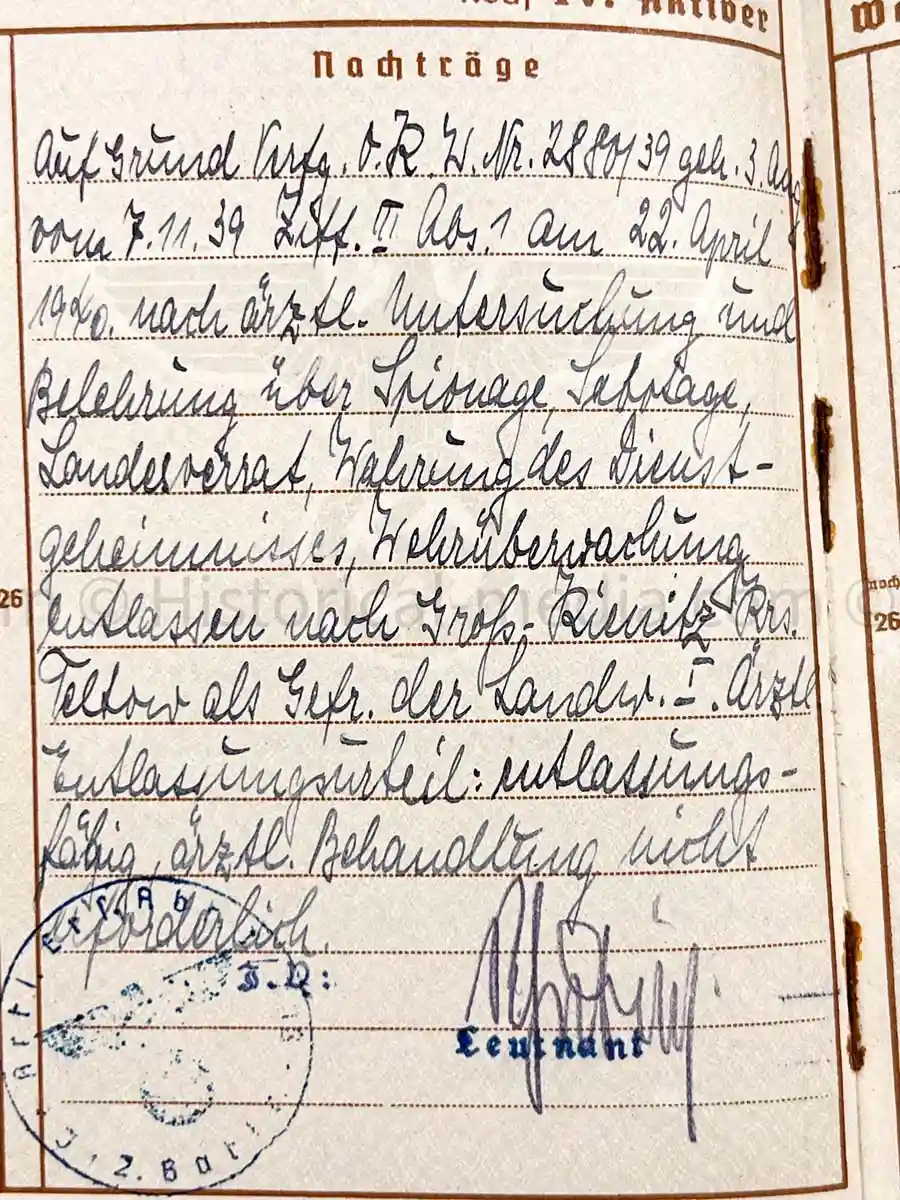 IV. Aktiver
Nachträge
Auf Grund Verfg. O.K.W. Nr. 2880/39 geh. 3. Ang
vom 7.11.39 Ziff. III Abs. 1 am 22. April
1940. nach ärztl. Untersuchung und
Belehrung über Spionage, Sabotage,
Landesverrat, Wahrung des Dienst-
geheimnisses, Wehrüberwachung
entlassen nach Groß-Kienitz Krs.
Teltow als Gefr. der Landw. I. Ärztl
Entlassungsurteil: entlassungs-
fähig, ärztl. Behandlung nicht
erforderlich.
Leutnant
26
26
© Historical-media.com ©
Artl. Ers. Abt.
2. Batt.